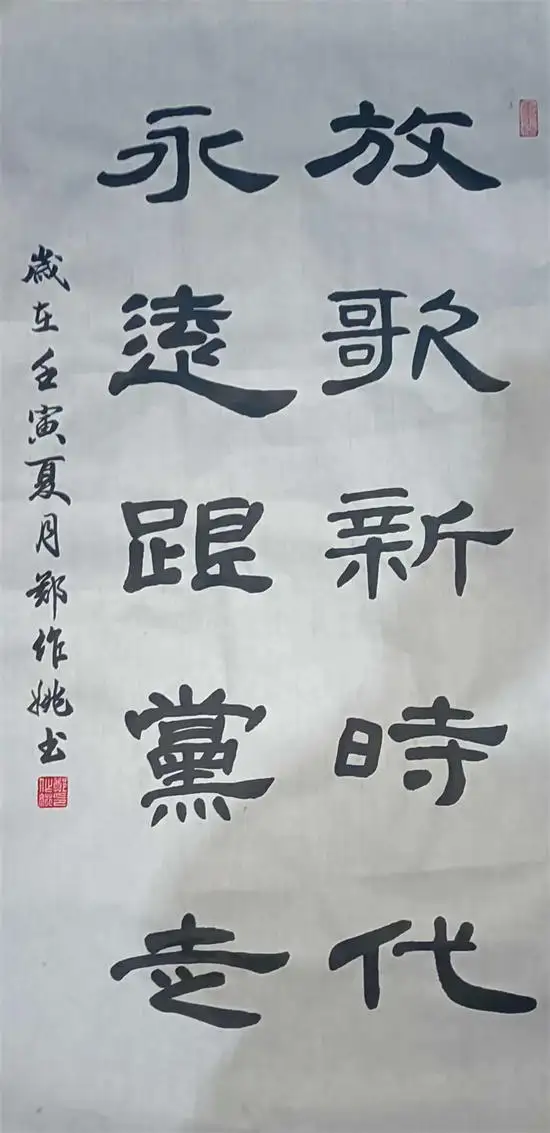 放歌新時代
永遠跟黨走
歲在壬寅夏月鄭作姚书